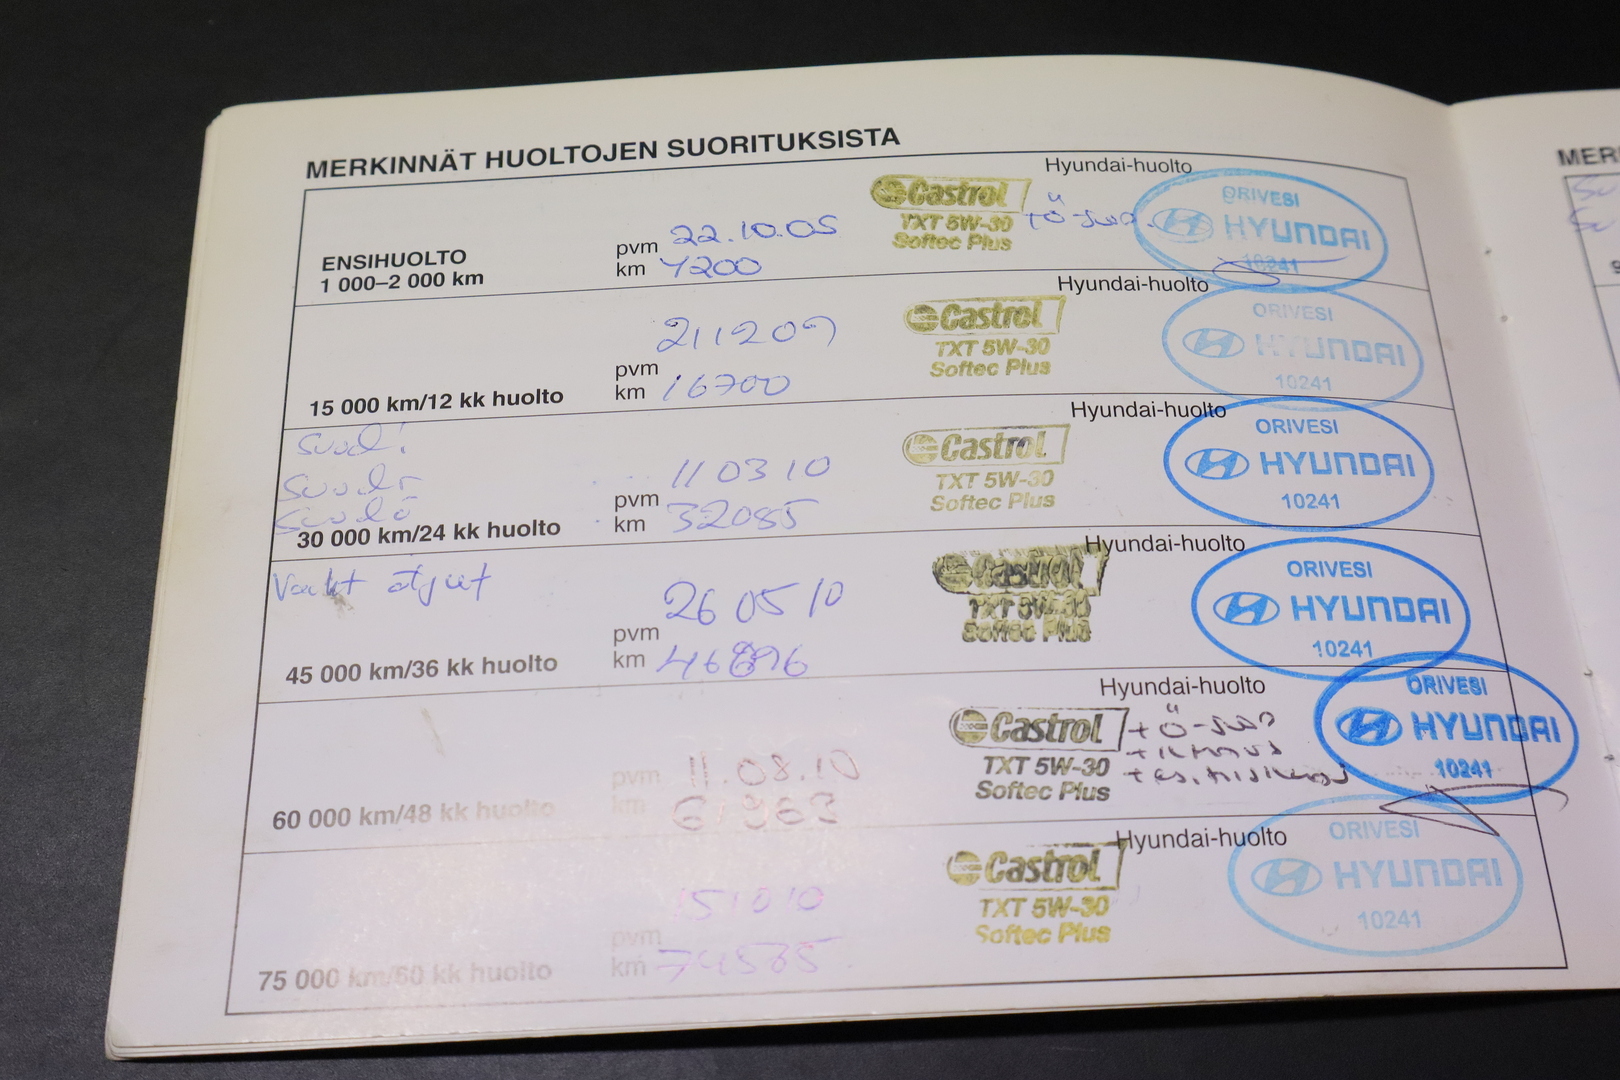 MERKINNÄT HUOLTOJEN SUORITUKSISTA
MER
Hyundai-huolto
Castrol
TXT 5W-30
Softec Plus
ORIVESI
HYUNDAI
10241
ENSIHUOLTO
1 000–2 000 km
pvm 22.10.05
km 4200
Hyundai-huolto
Castrol
TXT 5W-30
Softec Plus
ORIVESI
HYUNDAI
10241
15 000 km/12 kk huolto
pvm 211209
km 16700
Hyundai-huolto
Castrol
TXT 5W-30
Softec Plus
ORIVESI
HYUNDAI
10241
30 000 km/24 kk huolto
pvm 110310
km 32085
Hyundai-huolto
Castrol
TXT 5W-30
Softec Plus
ORIVESI
HYUNDAI
10241
45 000 km/36 kk huolto
pvm 260510
km
Hyundai-huolto
Castrol
TXT 5W-30
Softec Plus
ORIVESI
HYUNDAI
10241
60 000 km/48 kk huolto
pvm 11.08.10
km 61963
Hyundai-huolto
Castrol
TXT 5W-30
Softec Plus
ORIVESI
HYUNDAI
10241
75 000 km/60 kk huolto
pvm 151010
km 74565